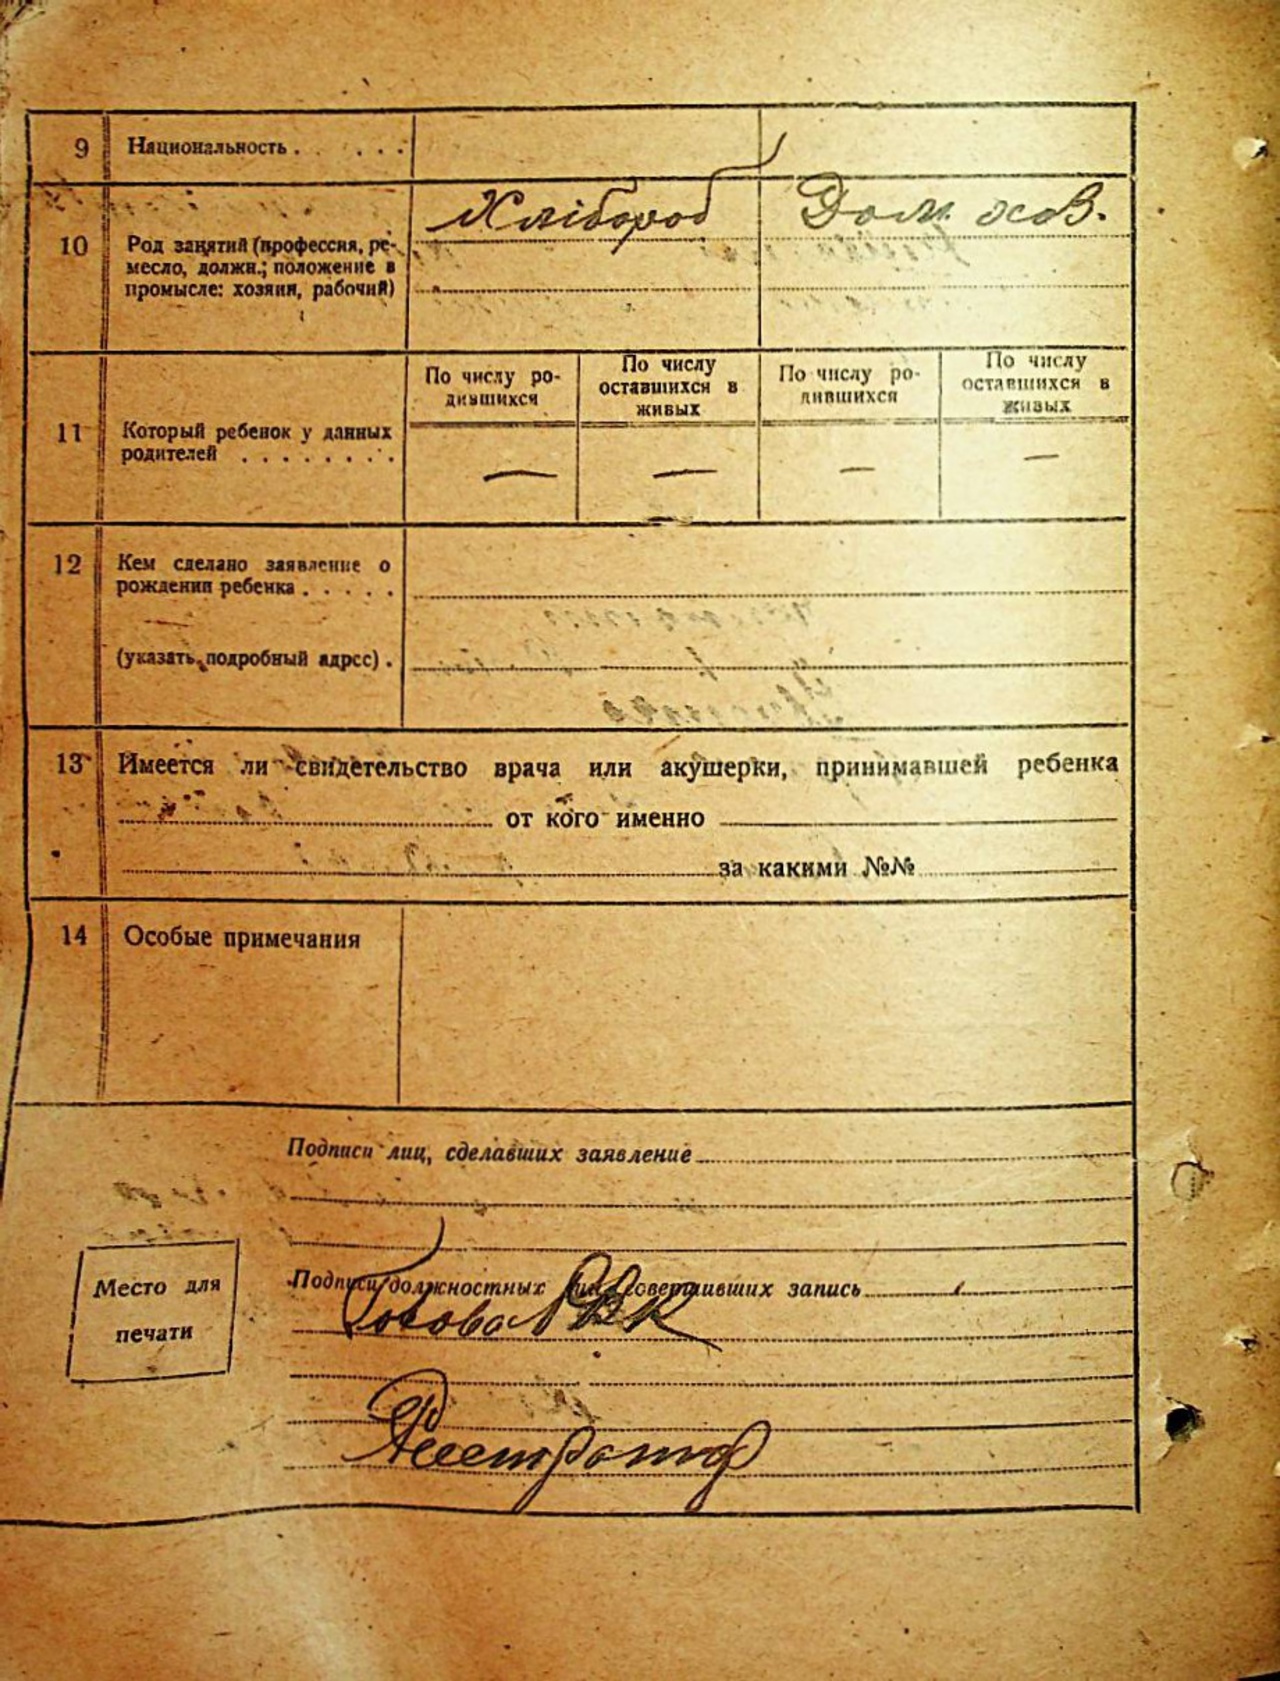 9 Национальность . . . . .
Хлібороб Дом. хоз.
10 Род занятий (профессия, ре-
месло, должн.; положение в
промысле: хозяин, рабочий)
По числу ро-
дившихся
По числу
оставшихся в
живых
По числу ро-
дившихся
По числу
оставшихся в
живых
11 Который ребенок у данных
родителей . . . . . . . .
— — — —
12 Кем сделано заявление о
рождении ребенка . . . . .
(указать подробный адрес) .
13 Имеется ли свидетельство врача или акушерки, принимавшей ребенка
от кого именно
за какими №№
14 Особые примечания
Подписи лиц, сделавших заявление
Место для
печати
Подписи должностных лиц совершивших запись
Голова
Реєстратор